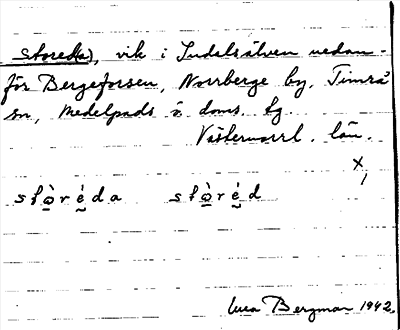 Storeda), vik i Indalsälven nedan-
för Bergeforsen, Norrberge by, Timrå
sn, Medelpads ö. doms. tg
Västernorrl. län.
x,
stò̱ré̱da stò̱ré̱d
Bergman 1942.